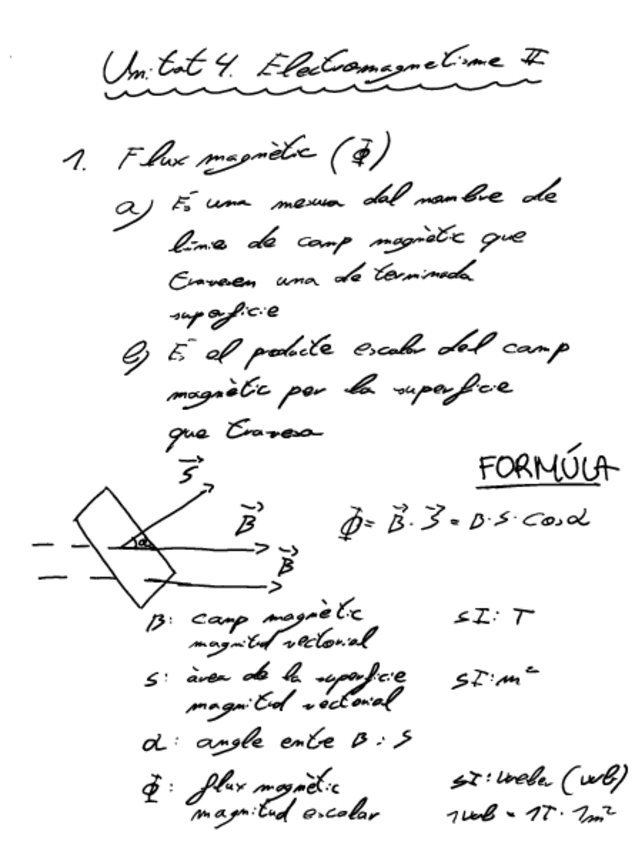 Unitat 4. Electromagnetisme II
1. Flux magnètic (Φ)
a) És una mesura del nombre de
línie de camp magnètic que
travesen una determinada
superficie
b) És el producte escalar del camp
magnètic per la superficie
que travesa
S
FORMÚLA
B
Φ = B · S = B · S · cos α
α
B
B: camp magnètic SI: T
magnitud vectorial
S: àrea de la superficie SI: m²
magnitud vectorial
α: angle entre B i S
Φ: flux magnètic SI: weber (wb)
magnitud escalar 1 wb = 1T · 1m²